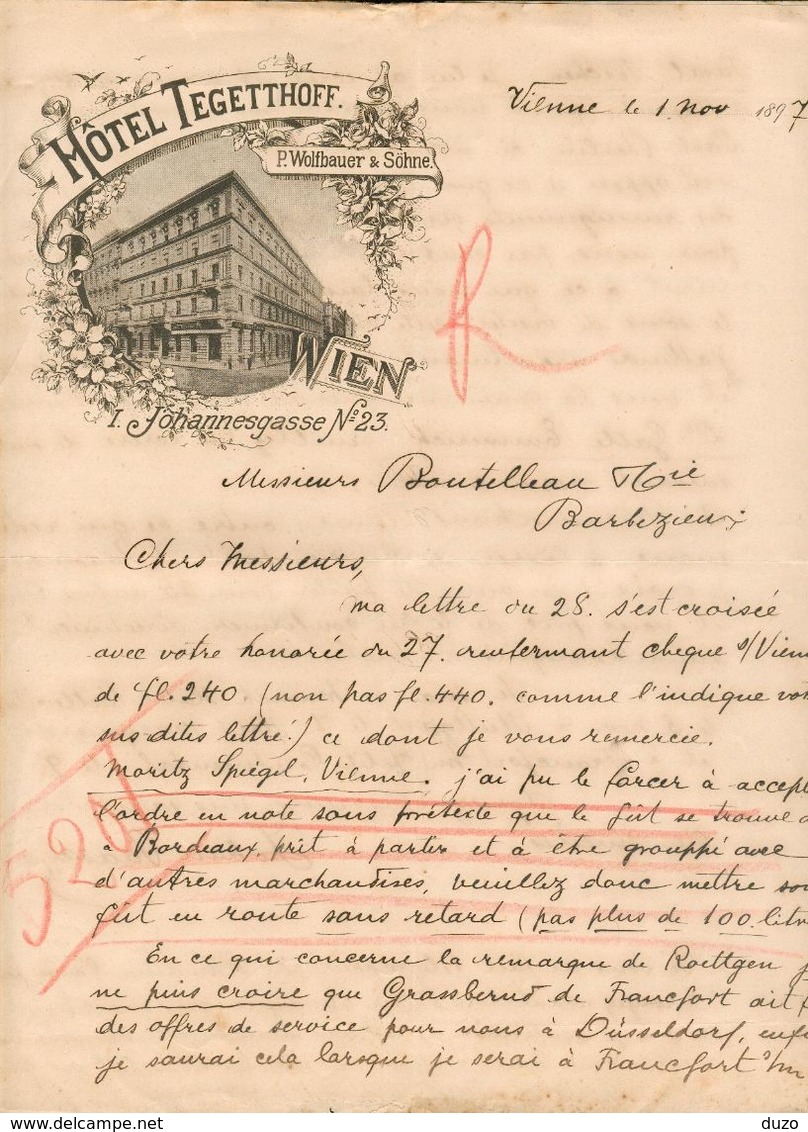 HÔTEL TEGETTHOFF.
P. Wolfbauer & Söhne.
WIEN
I. Johannesgasse No. 23.
Vienne le 1 nov 1897
Messieurs Boutelleau & Cie
Barbezieux
Chers Messieurs,
ma lettre du 28. s'est croisée
avec votre honorée du 27. renfermant cheque s/Vienn
de fl. 240 (non pas fl. 440. comme l'indique vot
sus dites lettre!) ce dont je vous remercie.
Moritz Spiegel, Vienne. j'ai pu le forcer à accept
l'ordre en note sous prétexte que le fût se trouve d
à Bordeaux, prêt à partir et à être grouppé avec
d'autres marchandises, veuillez donc mettre son
fût en route sans retard (pas plus de 100 litre
En ce qui concerne la remarque de Roettgen j
ne puis croire que Grassbernd de Francfort ait f
des offres de service pour nous à Düsseldorf, enf
je saurai cela lorsque je serai à Francfort s/m
R
5201
duzo